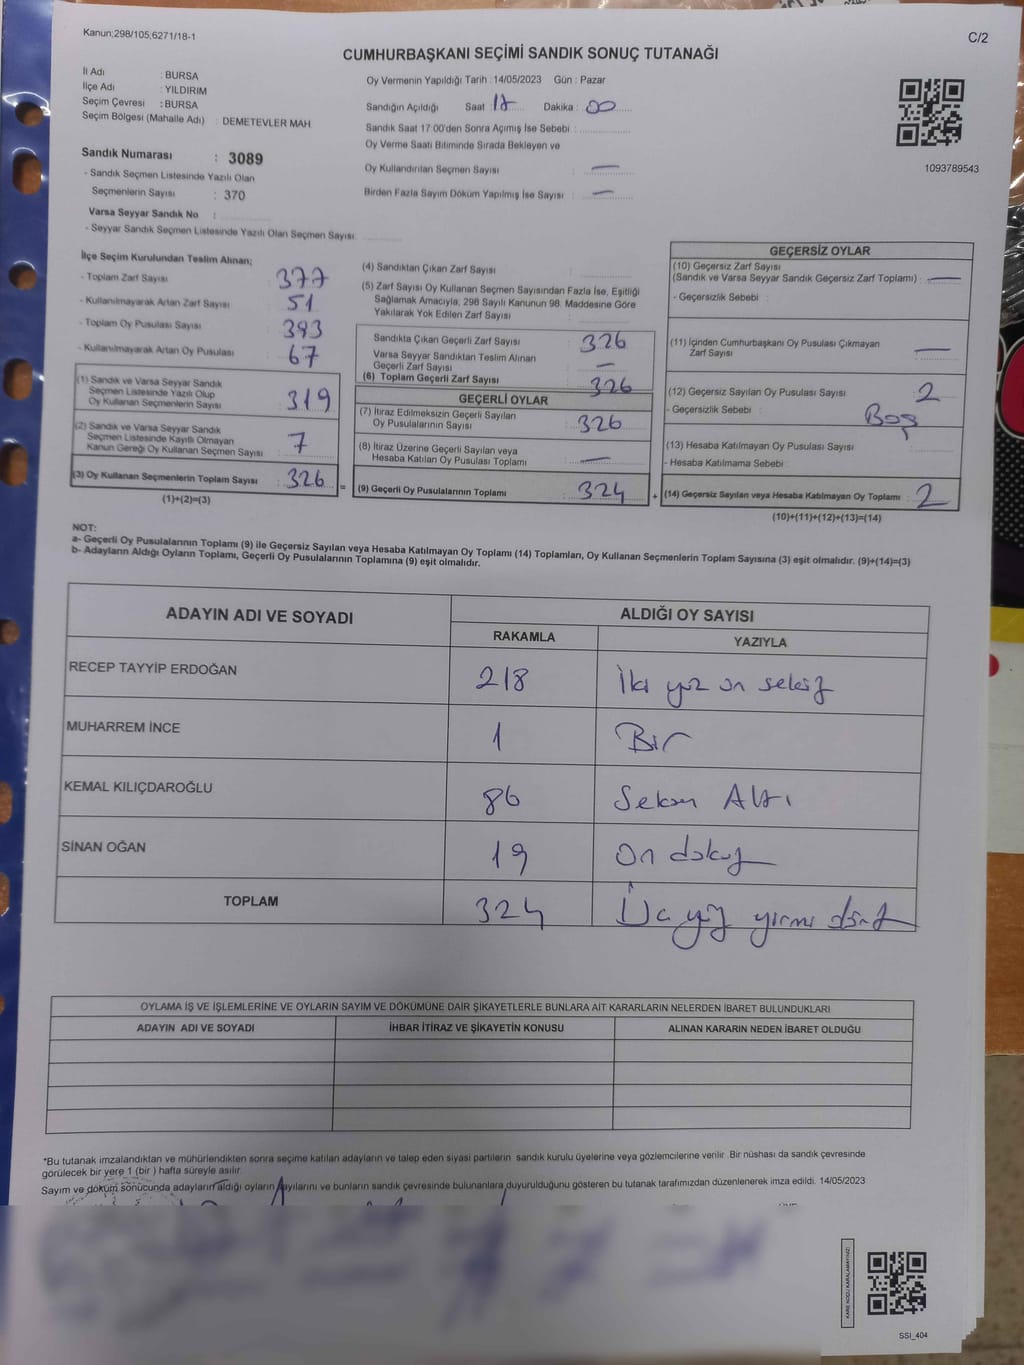 Kanun;298/105;6271/18-1
C/2
CUMHURBAŞKANI SEÇİMİ SANDIK SONUÇ TUTANAĞI
İl Adı : BURSA
İlçe Adı : YILDIRIM
Seçim Çevresi : BURSA
Seçim Bölgesi (Mahalle Adı) : DEMETEVLER MAH
Sandık Numarası : 3089
- Sandık Seçmen Listesinde Yazılı Olan
Seçmenlerin Sayısı : 370
Varsa Seyyar Sandık No :
- Seyyar Sandık Seçmen Listesinde Yazılı Olan Seçmen Sayısı:
Oy Vermenin Yapıldığı Tarih :14/05/2023 Gün : Pazar
Sandığın Açıldığı Saat : 17 Dakika : 00
Sandık Saat 17:00'den Sonra Açımış İse Sebebi :
Oy Verme Saati Bitiminde Sırada Bekleyen ve
Oy Kullandırılan Seçmen Sayısı : —
Birden Fazla Sayım Döküm Yapılmış İse Sayısı : —
1093789543
İlçe Seçim Kurulundan Teslim Alınan;
- Toplam Zarf Sayısı : 377
- Kullanılmayarak Artan Zarf Sayısı : 51
- Toplam Oy Pusulası Sayısı : 393
- Kullanılmayarak Artan Oy Pusulası : 67
(1) Sandık ve Varsa Seyyar Sandık
Seçmen Listesinde Yazılı Olup
Oy Kullanan Seçmenlerin Sayısı : 319
(2) Sandık ve Varsa Seyyar Sandık
Seçmen Listesinde Kayıtlı Olmayan
Kanun Gereği Oy Kullanan Seçmen Sayısı : 7
(3) Oy Kullanan Seçmenlerin Toplam Sayısı : 326
(1)+(2)=(3)
(4) Sandıktan Çıkan Zarf Sayısı :
(5) Zarf Sayısı Oy Kullanan Seçmen Sayısından Fazla İse, Eşitliği
Sağlamak Amacıyla, 298 Sayılı Kanunun 98. Maddesine Göre
Yakılarak Yok Edilen Zarf Sayısı :
Sandıkta Çıkan Geçerli Zarf Sayısı : 326
Varsa Seyyar Sandıktan Teslim Alınan
Geçerli Zarf Sayısı : —
(6) Toplam Geçerli Zarf Sayısı : 326
GEÇERLİ OYLAR
(7) İtiraz Edilmeksizin Geçerli Sayılan
Oy Pusulalarının Sayısı : 326
(8) İtiraz Üzerine Geçerli Sayılan veya
Hesaba Katılan Oy Pusulası Toplamı : —
= (9) Geçerli Oy Pusulalarının Toplamı : 324
GEÇERSİZ OYLAR
(10) Geçersiz Zarf Sayısı
(Sandık ve Varsa Seyyar Sandık Geçersiz Zarf Toplamı) : —
- Geçersizlik Sebebi :
(11) İçinden Cumhurbaşkanı Oy Pusulası Çıkmayan
Zarf Sayısı : —
(12) Geçersiz Sayılan Oy Pusulası Sayısı : 2
- Geçersizlik Sebebi : Boş
(13) Hesaba Katılmayan Oy Pusulası Sayısı
- Hesaba Katılmama Sebebi :
+ (14) Geçersiz Sayılan veya Hesaba Katılmayan Oy Toplamı : 2
(10)+(11)+(12)+(13)=(14)
NOT:
a- Geçerli Oy Pusulalarının Toplamı (9) ile Geçersiz Sayılan veya Hesaba Katılmayan Oy Toplamı (14) Toplamları, Oy Kullanan Seçmenlerin Toplam Sayısına (3) eşit olmalıdır. (9)+(14)=(3)
b- Adayların Aldığı Oyların Toplamı, Geçerli Oy Pusulalarının Toplamına (9) eşit olmalıdır.
ADAYIN ADI VE SOYADI
ALDIĞI OY SAYISI
RAKAMLA YAZIYLA
RECEP TAYYİP ERDOĞAN 218 İki yüz on sekiz
MUHARREM İNCE 1 Bir
KEMAL KILIÇDAROĞLU 86 Seksen Altı
SİNAN OĞAN 19 On dokuz
TOPLAM 324 Üç yüz yirmi dört
OYLAMA İŞ VE İŞLEMLERİNE VE OYLARIN SAYIM VE DÖKÜMÜNE DAİR ŞİKAYETLERLE BUNLARA AİT KARARLARIN NELERDEN İBARET BULUNDUKLARI
ADAYIN ADI VE SOYADI İHBAR İTİRAZ VE ŞİKAYETİN KONUSU ALINAN KARARIN NEDEN İBARET OLDUĞU
*Bu tutanak imzalandıktan ve mühürlendikten sonra seçime katılan adayların ve talep eden siyasi partilerin sandık kurulu üyelerine veya gözlemcilerine verilir .Bir nüshası da sandık çevresinde
görülecek bir yere 1 (bir ) hafta süreyle asılır.
Sayım ve döküm sonucunda adayların aldığı oyların sayılarını ve bunların sandık çevresinde bulunanlara duyurulduğunu gösteren bu tutanak tarafımızdan düzenlenerek imza edildi. 14/05/2023
KARE KODU KARALAMAYINIZ!
SSI_404